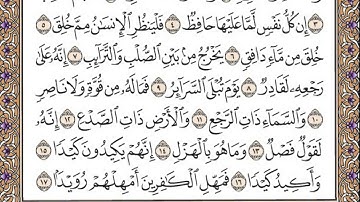 ٣ إِن كُلُّ نَفْسٍ لَّمَّا عَلَيْهَا حَافِظٌ ٤ فَلْيَنظُرِ ٱلْإِنسَٰنُ مِمَّ خُلِقَ ٥
خُلِقَ مِن مَّآءٍ دَافِقٍ ٦ يَخْرُجُ مِنۢ بَيْنِ ٱلصُّلْبِ وَٱلتَّرَآئِبِ ٧ إِنَّهُۥ عَلَىٰ
رَجْعِهِۦ لَقَادِرٌ ٨ يَوْمَ تُبْلَى ٱلسَّرَآئِرُ ٩ فَمَا لَهُۥ مِن قُوَّةٍ وَلَا نَاصِرٍ
١٠ وَٱلسَّمَآءِ ذَاتِ ٱلرَّجْعِ ١١ وَٱلْأَرْضِ ذَاتِ ٱلصَّدْعِ ١٢ إِنَّهُۥ
لَقَوْلٌ فَصْلٌ ١٣ وَمَا هُوَ بِٱلْهَزْلِ ١٤ إِنَّهُمْ يَكِيدُونَ كَيْدًا ١٥
وَأَكِيدُ كَيْدًا ١٦ فَمَهِّلِ ٱلْكَٰفِرِينَ أَمْهِلْهُمْ رُوَيْدًۢا ١٧